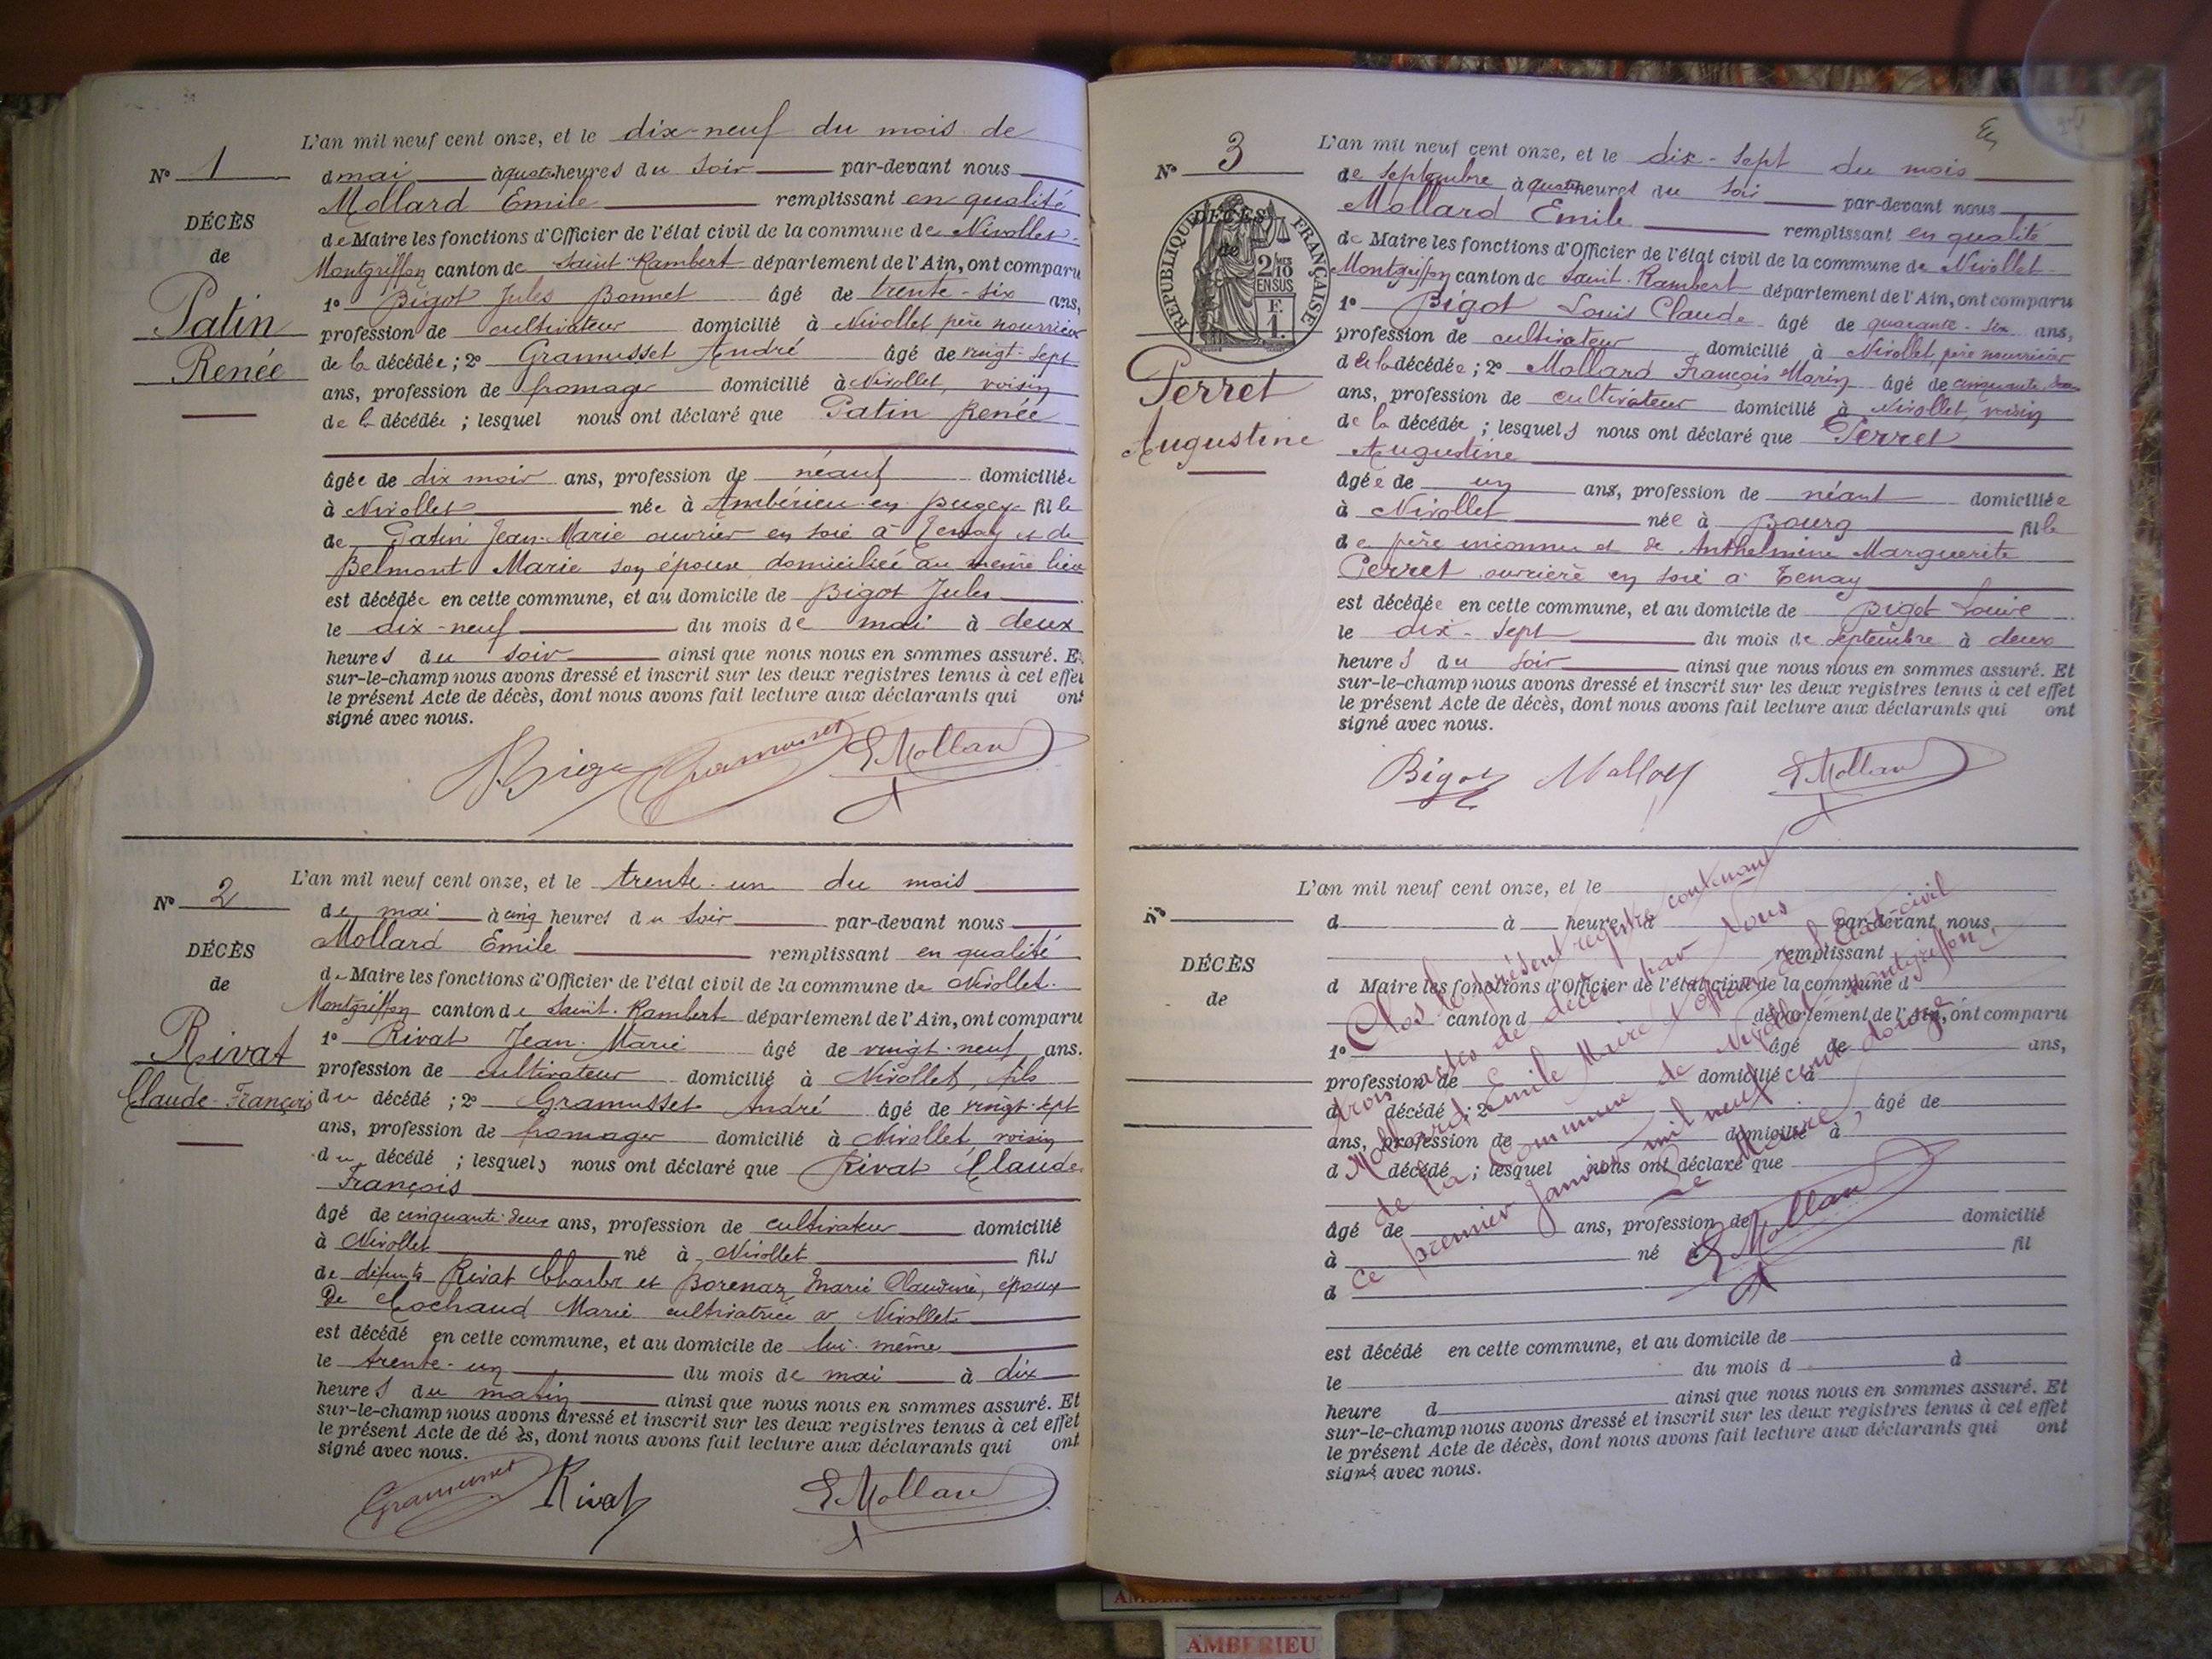 L'an mil neuf cent onze, et le dix-neuf du mois de
N° 1
d mai à quatre heures du soir par-devant nous
Mollard Emile remplissant en qualité
DÉCÈS
de Maire les fonctions d'Officier de l'état civil de la commune de Nivollet-
de
Montgriffon canton de Saint-Rambert département de l'Ain, ont comparu
1° Bigot Jules Bonnet âgé de trente-six ans,
Patin
profession de cultivateur domicilié à Nivollet père nourricier
Renée
de la décédée ; 2° Gramusset André âgé de vingt-sept
ans, profession de fromager domicilié à Nivollet, voisin
de la décédée ; lesquel nous ont déclaré que Patin Renée
âgée de dix mois ans, profession de néant domiciliée
à Nivollet née à Ambérieu en Bugey fille
de Patin Jean-Marie ouvrier en soie à Tenay et de
Belmont Marie son épouse domiciliée au même lieu
est décédée en cette commune, et au domicile de Bigot Jules
le dix-neuf du mois de mai à deux
heures du soir ainsi que nous nous en sommes assuré. Et
sur-le-champ nous avons dressé et inscrit sur les deux registres tenus à cet effet
le présent Acte de décès, dont nous avons fait lecture aux déclarants qui ont
signé avec nous.
Gramusset E Mollard
L'an mil neuf cent onze, et le trente-un du mois
N° 2
de mai à cinq heures du soir par-devant nous
Mollard Emile remplissant en qualité
DÉCÈS
de Maire les fonctions d'Officier de l'état civil de la commune de Nivollet-
de
Montgriffon canton de Saint-Rambert département de l'Ain, ont comparu
1° Rivat Jean-Marie âgé de vingt-neuf ans.
Rivat
profession de cultivateur domicilié à Nivollet, fils
Claude-François
du décédé ; 2° Gramusset André âgé de vingt-sept
ans, profession de fromager domicilié à Nivollet, voisin
du décédé ; lesquels nous ont déclaré que Rivat Claude
François
âgé de cinquante-deux ans, profession de cultivateur domicilié
à Nivollet né à Nivollet fils
de défunts Rivat Charles et Borenaz Marie Claudine, époux
De Cochaud Marie cultivatrice à Nivollet
est décédé en cette commune, et au domicile de lui-même
le trente-un du mois de mai à dix
heures du matin ainsi que nous nous en sommes assuré. Et
sur-le-champ nous avons dressé et inscrit sur les deux registres tenus à cet effet
le présent Acte de dé ès, dont nous avons fait lecture aux déclarants qui ont
signé avec nous.
Gramusset Rivat E Mollard
L'an mil neuf cent onze, et le dix-sept du mois
N° 3
de septembre à quatre heures du soir par-devant nous
Mollard Emile remplissant en qualité
DÉCÈS
de
RÉPUBLIQUE FRANÇAISE
2/10 EN SUS
F. 1.
de Maire les fonctions d'Officier de l'état civil de la commune de Nivollet-
Montgriffon canton de Saint-Rambert département de l'Ain, ont comparu
1° Bigot Louis Claude âgé de quarante-six ans,
profession de cultivateur domicilié à Nivollet, père nourricier
Perret
de la décédée ; 2° Mollard François Marin âgé de cinquante
Augustine
ans, profession de cultivateur domicilié à Nivollet, voisin
de la décédée ; lesquels nous ont déclaré que Perret
Augustine
âgée de un ans, profession de néant domiciliée
à Nivollet née à Bourg fille
de père inconnu et de Anthelmine Marguerite
Perret ouvrière en soie à Tenay
est décédée en cette commune, et au domicile de Bigot Louis
le dix-sept du mois de septembre à deux
heures du soir ainsi que nous nous en sommes assuré. Et
sur-le-champ nous avons dressé et inscrit sur les deux registres tenus à cet effet
le présent Acte de décès, dont nous avons fait lecture aux déclarants qui ont
signé avec nous.
Bigot E Mollard
L'an mil neuf cent onze, et le
N°
d à heure d par-devant nous
remplissant
DÉCÈS
d Maire les fonctions d'Officier de l'état civil de la commune d
de
canton d département de l'Ain, ont comparu
1° âgé de ans,
profession de domicilié à
d décédé ; 2° âgé de
ans, profession de domicilié à
d décédé ; lesquel nous ont déclaré que
âgé de ans, profession de domicilié
à né à fil
d
est décédé en cette commune, et au domicile de
le du mois d à
heure d ainsi que nous nous en sommes assuré. Et
sur-le-champ nous avons dressé et inscrit sur les deux registres tenus à cet effet
le présent Acte de décès, dont nous avons fait lecture aux déclarants qui ont
signé avec nous.
Clos le présent registre contenant
trois actes de décès par Nous
Mollard Emile Maire Officier de l'Etat-civil
de la Commune de Nivollet Montgriffon,
ce premier janvier mil neuf cent douze
Le Maire,
E Mollard
AMBERIEU